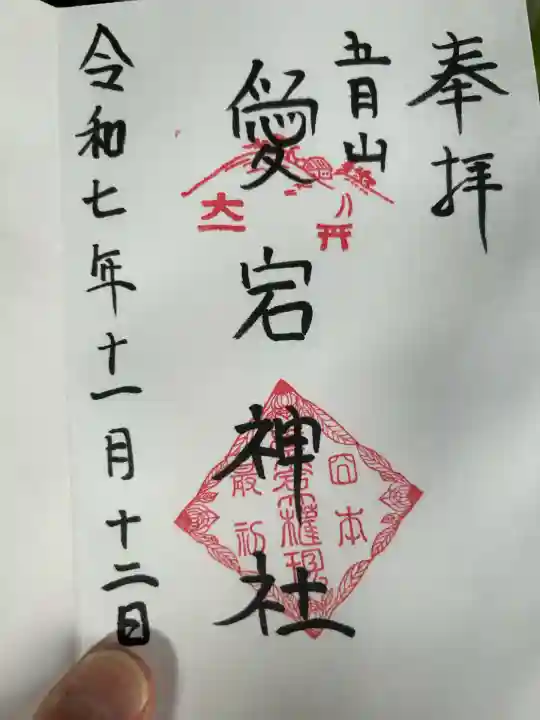 奉拝
五月山
愛宕神社
大一
開
日本
愛宕権現
最初
令和七年十一月十二日